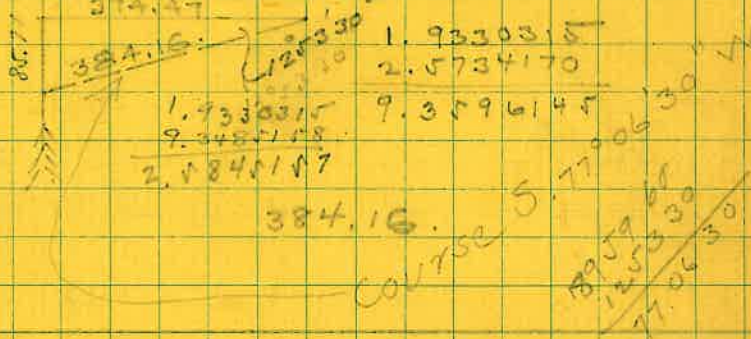 374.47
85.71
384.16.
12 53 30
1.9330315
2.5734170
9.3596145
1.9330315
9.3485158
2.5845157
384.16.
course S. 77° 06' 30" W
89 59 60
12 53 30
77.06 30